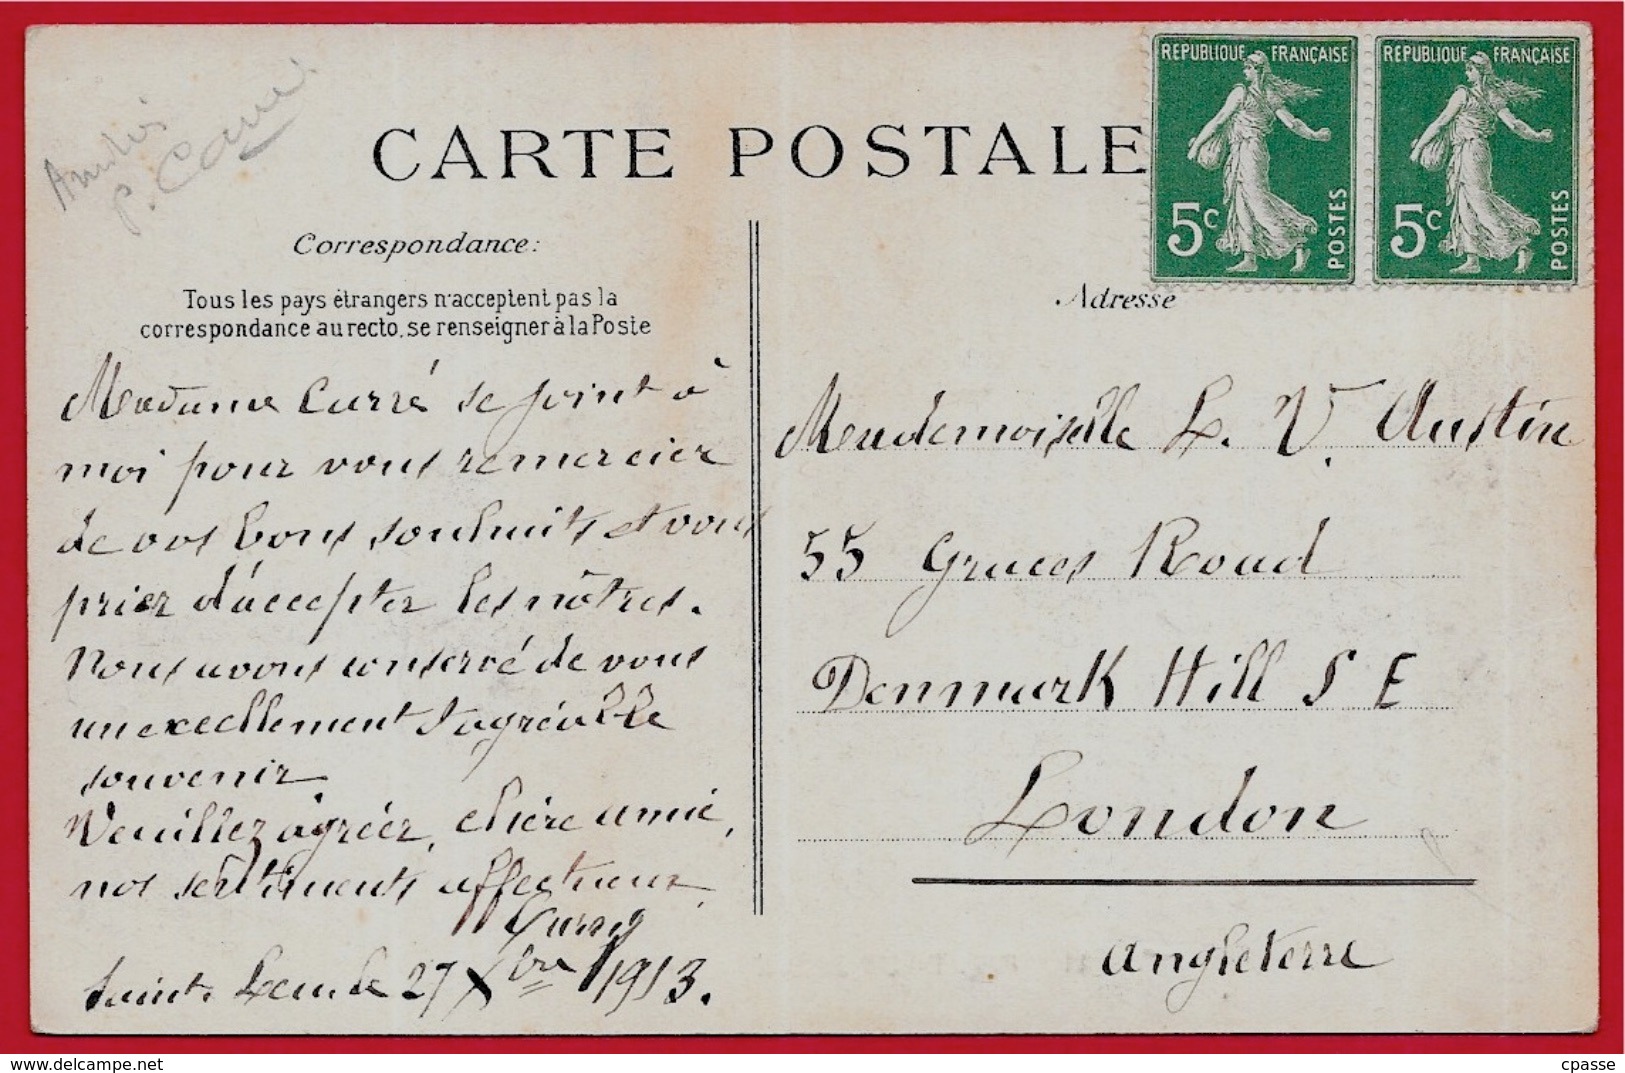 CARTE POSTALE
RÉPUBLIQUE FRANÇAISE
5c
POSTES
RÉPUBLIQUE FRANÇAISE
5c
POSTES
Correspondance:
Tous les pays étrangers n'acceptent pas la
correspondance au recto, se renseigner à la Poste
Madame Curré se joint à
moi pour vous remercier
de vos bons souhaits et vous
prier d'accepter les nôtres.
Nous avons conservé de vous
un excellement & agréable
souvenir.
Veuillez agréer, chère amie,
nos sentiments affectueux.
Saint Leu, le 27 Xbre 1913.
Adresse
Mademoiselle L. V. Austin
55 Graces Road
Denmark Hill S E
London
Angleterre
delcampe.net
cpasse